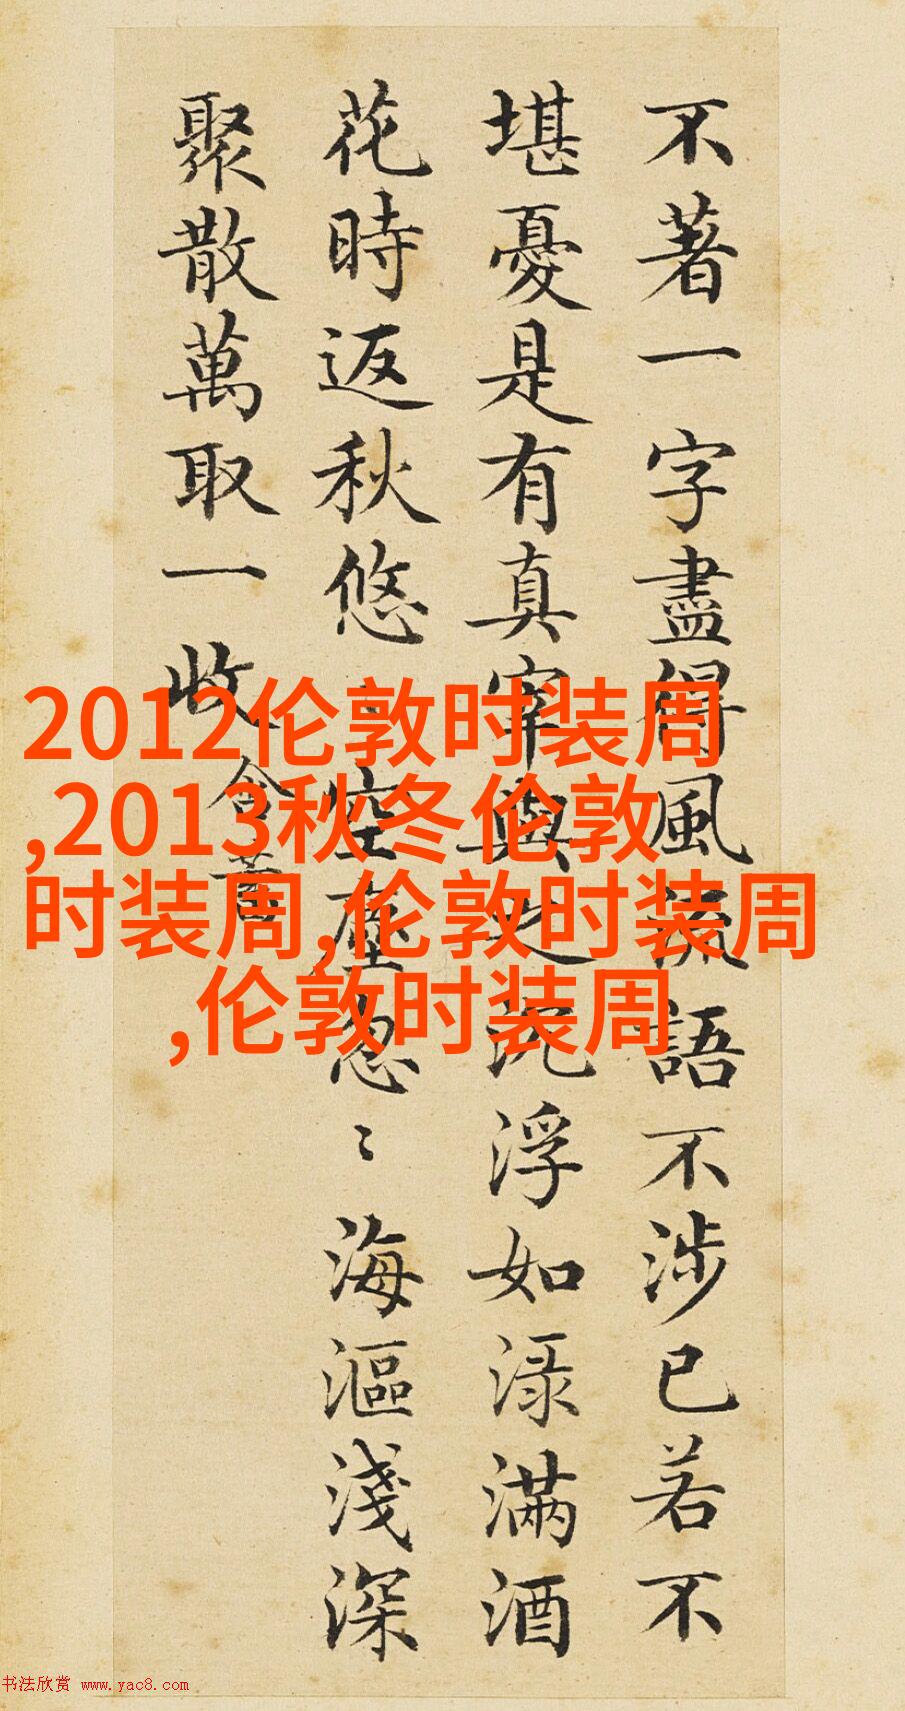 不著一字盡得風流語不涉已若不
堪憂是有真宰與之沉浮如渌滿酒
花時返秋悠〻空塵忽〻海漚淺深
聚散萬取一收
含蓄
2012伦敦时装周
,2013秋冬伦敦
时装周,伦敦时装周
,伦敦时装周
书法欣赏 www.yac8.com